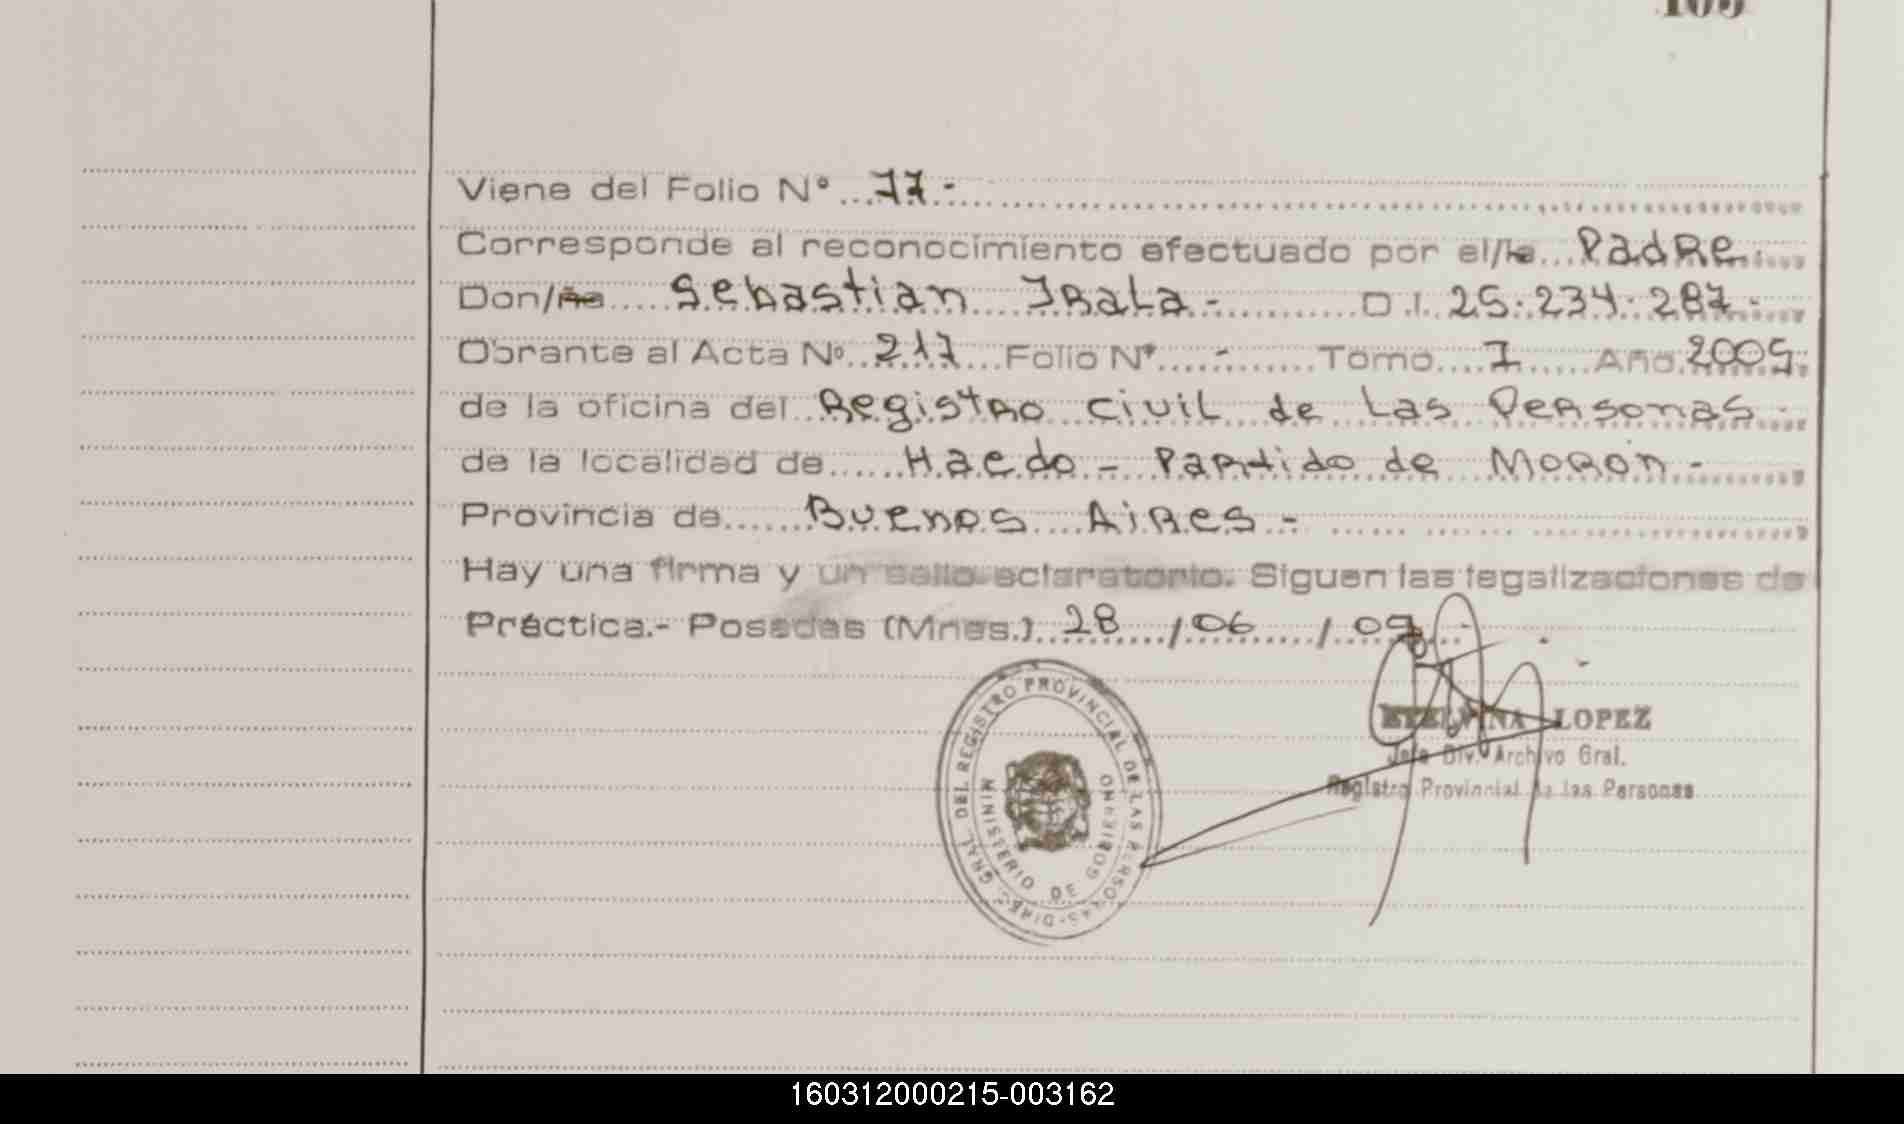 105
Viene del Folio N° 77-
Corresponde al reconocimiento efectuado por el/la Padre.
Don/ña Sebastian Irala - D.I. 25.234.287-
Obrante al Acta Nº 217 Folio Nº - Tomo I Año 2005
de la oficina del Registro Civil de Las Personas -
de la localidad de Haedo - Partido de Moron -
Provincia de Buenos Aires -
Hay una firma y un sello aclaratorio. Siguen las legalizaciones de
Práctica.- Posadas (Mnes.) 28 / 06 / 09
ETELVINA LOPEZ
Jefe Div. Archivo Gral.
Registro Provincial de las Personas
DIREC. GRAL. DEL REGISTRO PROVINCIAL DE LAS PERSONAS -
MINISTERIO DE GOBIERNO
160312000215-003162